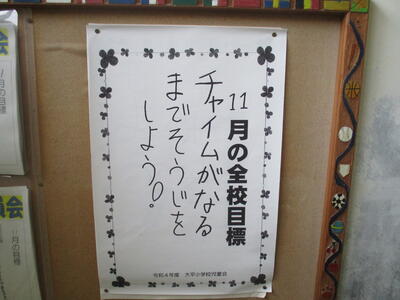 11月の全校目標
チャイムがなる
までそうじを
しよう。
令和4年度 大平小学校児童会
員会
11月の目標